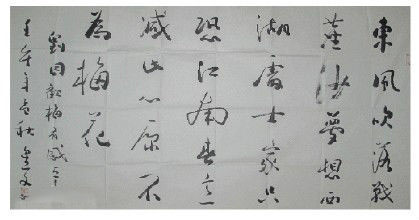 東風吹落戰
塵沙夢想西
湖處士家只
恐江南春意
減此心原不
為梅花
劉因觀梅有感
壬午年秋